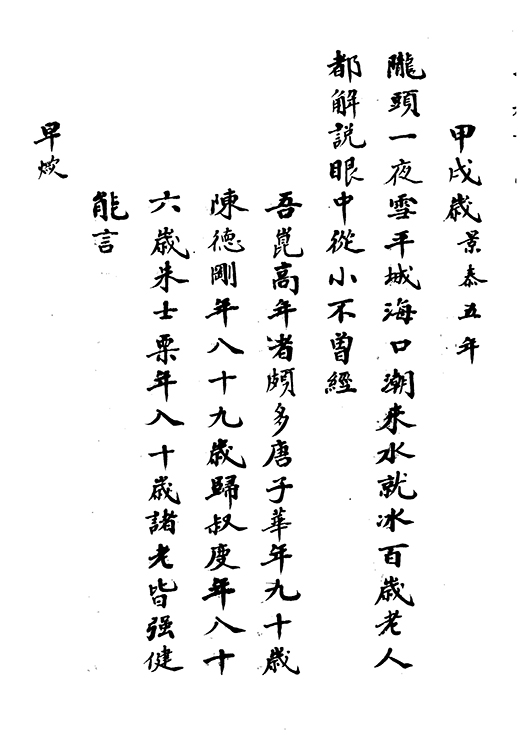 甲戌歲景泰五年
隴頭一夜雪平城海口潮来水就冰百歲老人
都解説眼中從小不曽經
吾崑高年者頗多唐子華年九十歲
陳德剛年八十九歲歸叔度年八十
六歲朱士栗年八十歲諸老皆强健
能言
早炊